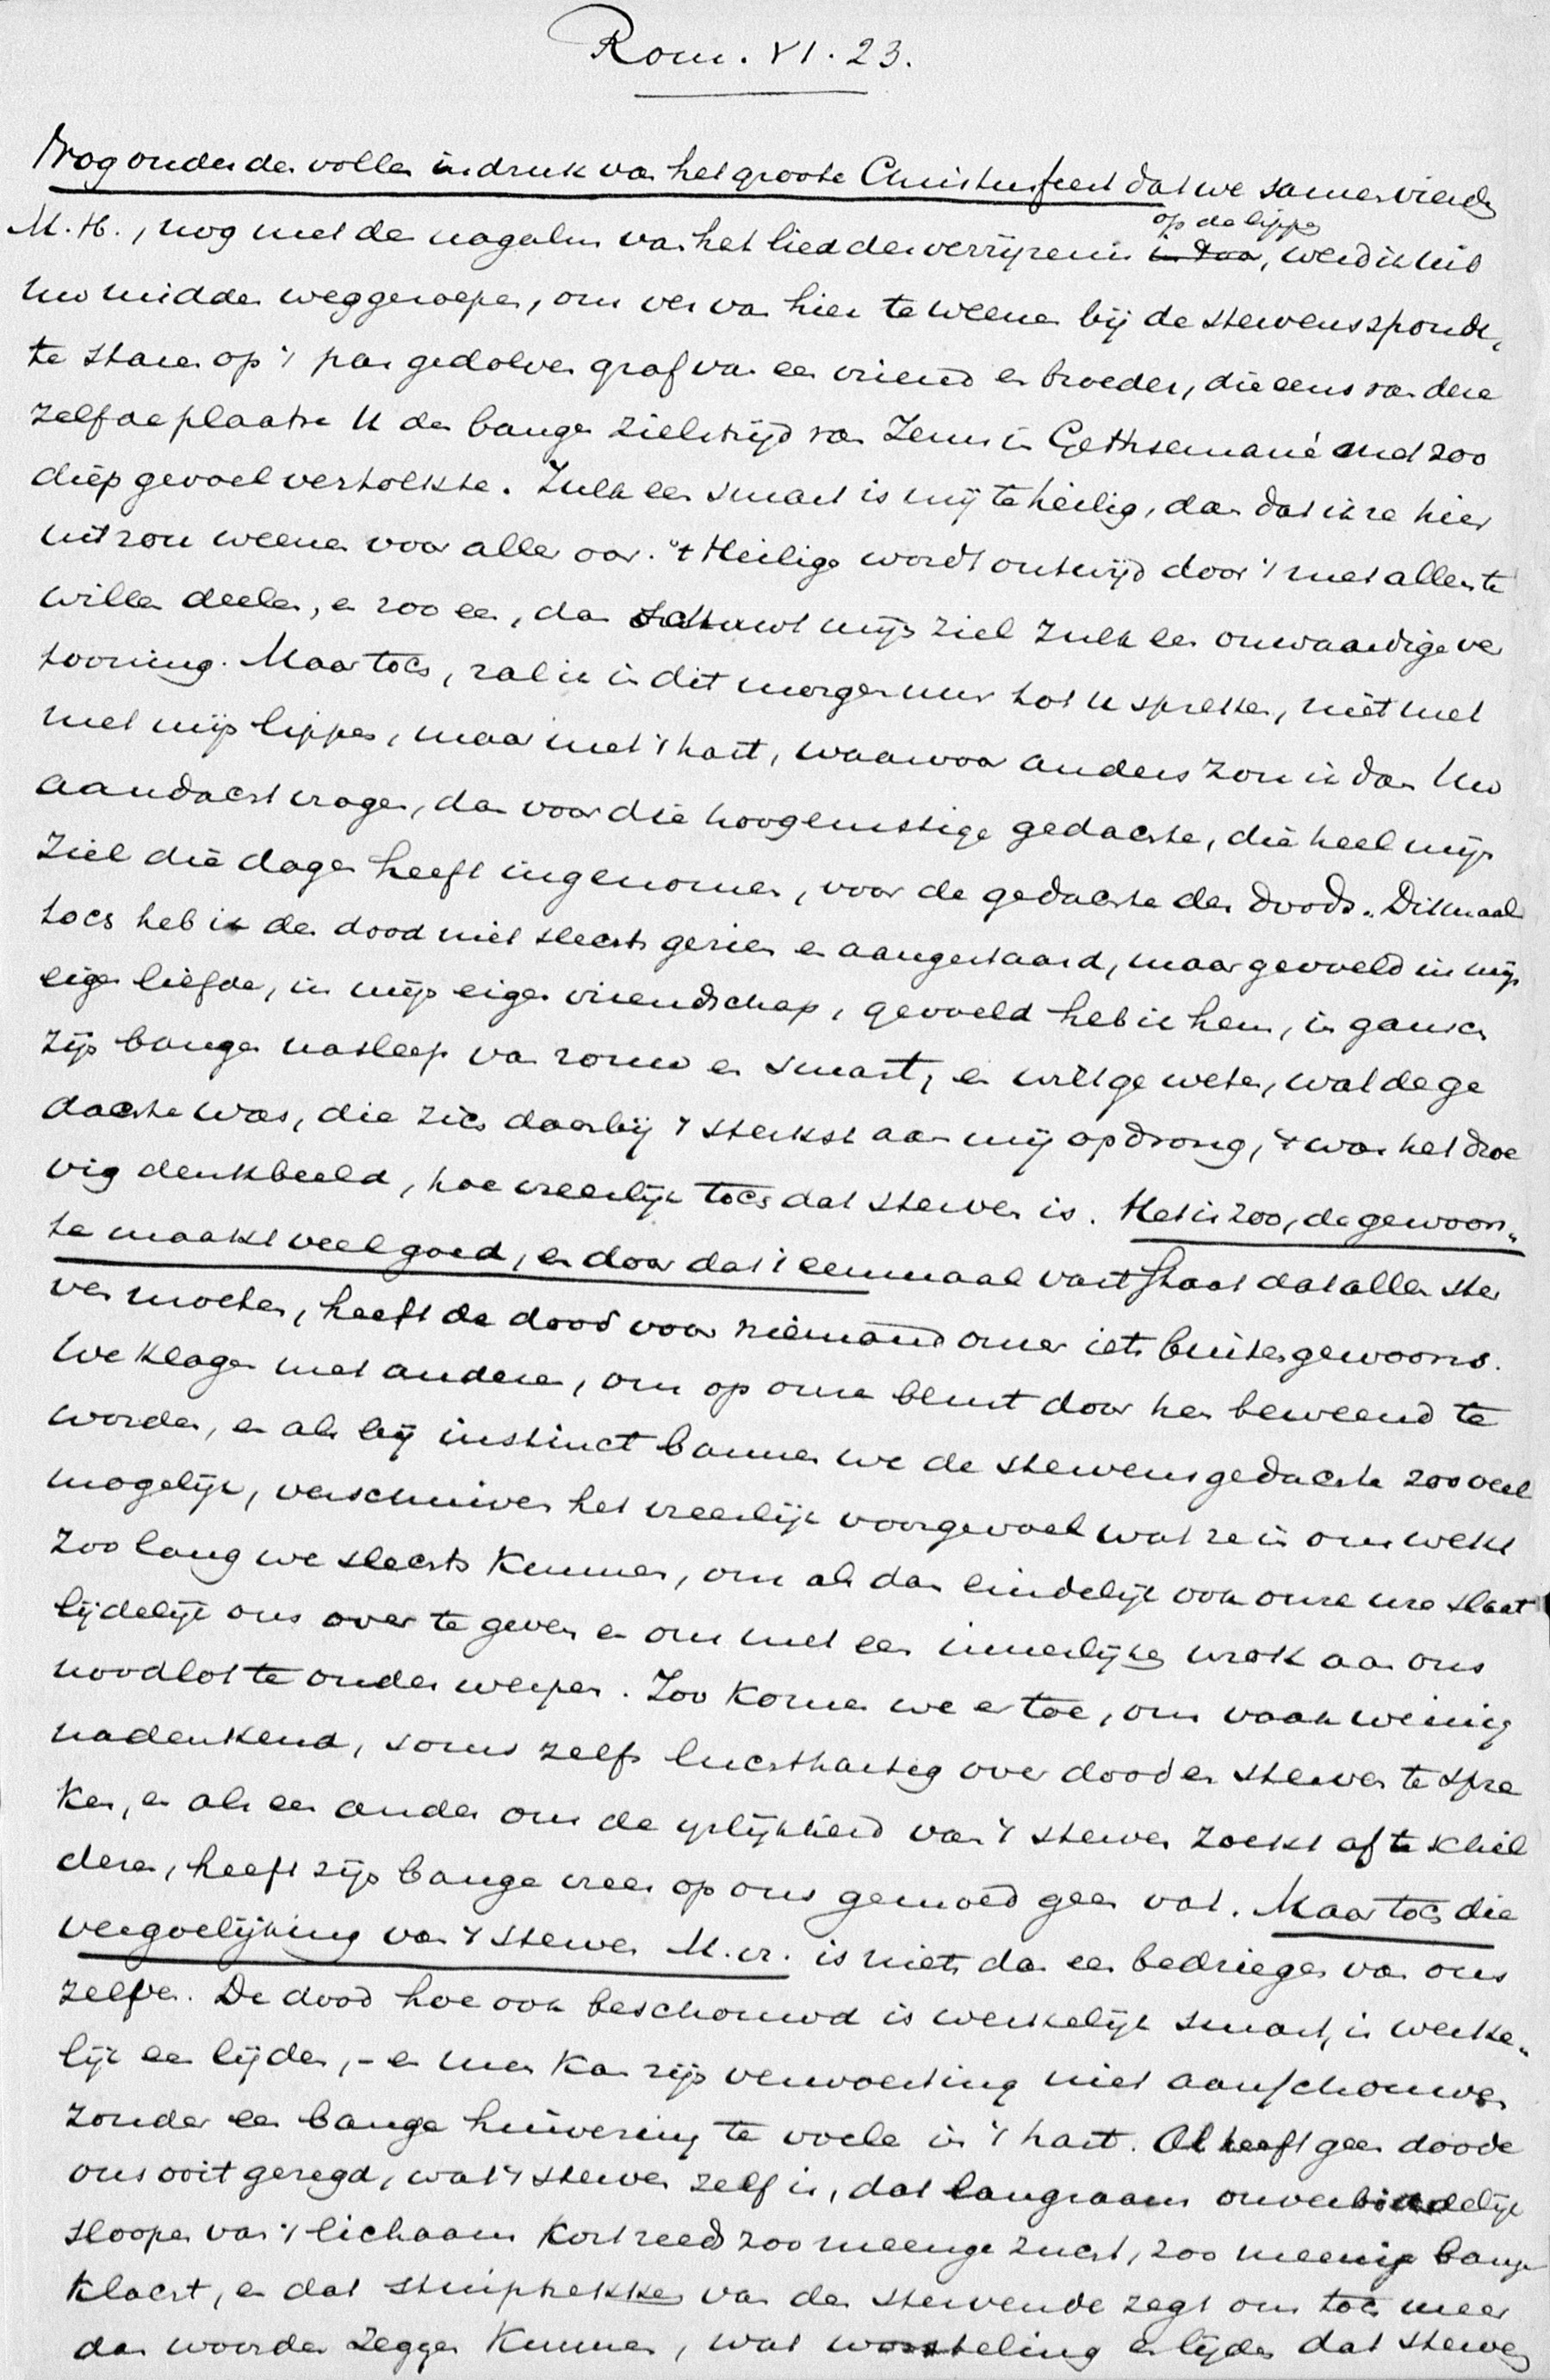 Rom. VI. 23.
Nog onder den vollen indruk van het groote Christusfeest dat we samen vierden
op de lippen
M. H., nog met den nagalm van het lied der verrijzenis in 't oor, werd ik uit
Uw midden weggeroepen, om ver van hier te weenen bij de stervenssponde,
te staren op 't pas gedolven graf van een vriend en broeder, die eens van deze
zelfde plaatse U den bangen zielstrijd van Jezus in Gethsemané met zoo
diep gevoel vertolkte. Zulk een smart is mij te heilig, dan dat ik ze hier
uit zou weenen voor aller oor. 't Heilige wordt ontwijd door 't met allen te
willen deelen, en zoo een, dan schuwt mijn ziel zulk een onwaardige ver
tooning. Maar toch, zal ik in dit morgenuur tot U spreken, niet met
met mijn lippen, maar met 't hart, waarvoor anders zou ik dan Uw
aandacht vragen, dan voor die hoogernstige gedachte, die heel mijn
ziel die dagen heeft ingenomen, voor de gedachte des doods. Ditmaal
toch heb ik den dood niet slechts gezien en aangestaard, maar gevoeld in mijn
eigen liefde, in mijn eigen vriendschap, gevoeld heb ik hem, in gansch
zijn bangen nasleep van rouw en smart, en wilt ge weten, wat de ge
dachte was, die zich daarbij 't sterkst aan mij opdrong, 't was het droe
vig denkbeeld, hoe vreeslijk toch dat sterven is. Het is zoo, de gewoon„
te maakt veel goed, en door dat 't eenmaal vast staat dat allen ster
ven moeten, heeft de dood voor niemand onzer iets buitengewoons.
We klagen met anderen, om op onze beurt door hen beweend te
worden, en als bij instinct bannen we de stervensgedachte zooveel
mogelijk, verschuiven het vreeslijk voorgevoel wat ze in ons wekt
zoo lang we slechts kunnen, om als dan eindelijk ook onze ure slaat
lijdelijk ons over te geven en ons met een innerlijken wrok aan ons
noodlot te onderwerpen. Zoo komen we er toe, om vaak weinig
nadenkend, soms zelfs luchthartig over dood en sterven te spre
ken, en als een ander ons de ijslijkheid van 't sterven zoekt af te schil
deren, heeft zijn bange vrees op ons gemoed geen vat. Maar toch die
vergoelijking van 't sterven M. vr. is niets dan een bedriegen van ons
zelven. De dood hoe ook beschouwd is werkelijk smart, is werke„
lijk een lijden, - en men kan zijn verwoesting niet aanschouwen
zonder een bange huivering te voelen in 't hart. Al heeft geen doode
ons ooit gezegd, wat 't sterven zelf is, dat langzaam onverbiddelijk
sloopen van 't lichaam kost reeds zoo meenge zucht, zoo menig bange
klacht, en dat stuiptrekken van den stervende zegt ons toch meer
dan woorden zeggen kunnen, wat worsteling en lijden dat sterven